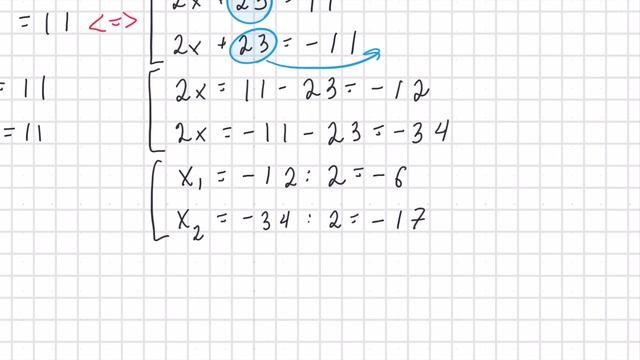 2x + 23 = 11
= 11 <=> 
2x + 23 = -11
= 11
2x = 11 - 23 = -12
= 11
2x = -11 - 23 = -34
x₁ = -12 : 2 = -6
x₂ = -34 : 2 = -17